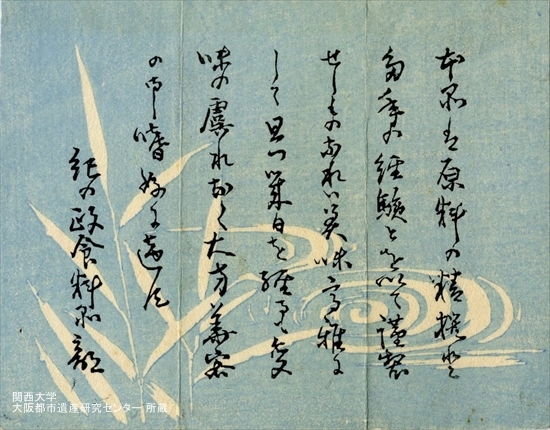 本品は原料の精撰と
多年の経験とを以て謹製
せしものなれハ美味高雅に
して且つ数日を経るも変
味の虞れなく大方美客
の御嗜好に適す
紀の政食料品部
関西大学
大阪都市遺産研究センター 所蔵